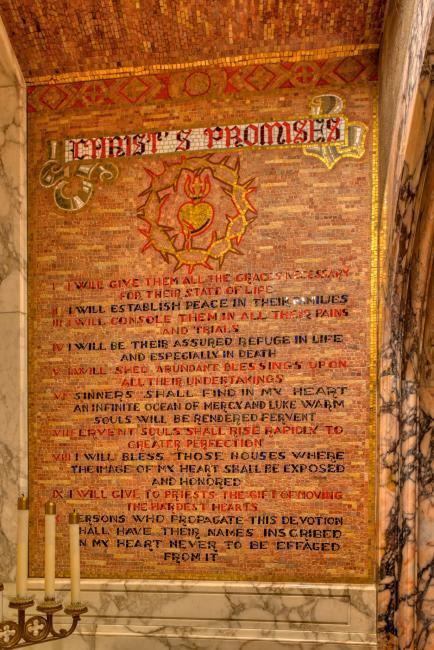 CHRIST'S PROMISES
I I WILL GIVE THEM ALL THE GRACES NECESSARY
FOR THEIR STATE OF LIFE
II I WILL ESTABLISH PEACE IN THEIR FAMILIES
III I WILL CONSOLE THEM IN ALL THEIR PAINS
AND TRIALS
IV I WILL BE THEIR ASSURED REFUGE IN LIFE
AND ESPECIALLY IN DEATH
V I WILL SHED ABUNDANT BLESSINGS UPON
ALL THEIR UNDERTAKINGS
VI SINNERS SHALL FIND IN MY HEART
AN INFINITE OCEAN OF MERCY AND LUKE WARM
SOULS WILL BE RENDERED FERVENT
VII FERVENT SOULS SHALL RISE RAPIDLY TO
GREATER PERFECTION
VIII I WILL BLESS THOSE HOUSES WHERE
THE IMAGE OF MY HEART SHALL BE EXPOSED
AND HONORED
IX I WILL GIVE TO PRIESTS THE GIFT OF MOVING
THE HARDEST HEARTS
PERSONS WHO PROPAGATE THIS DEVOTION
SHALL HAVE THEIR NAMES INSCRIBED
IN MY HEART NEVER TO BE EFFACED
FROM IT